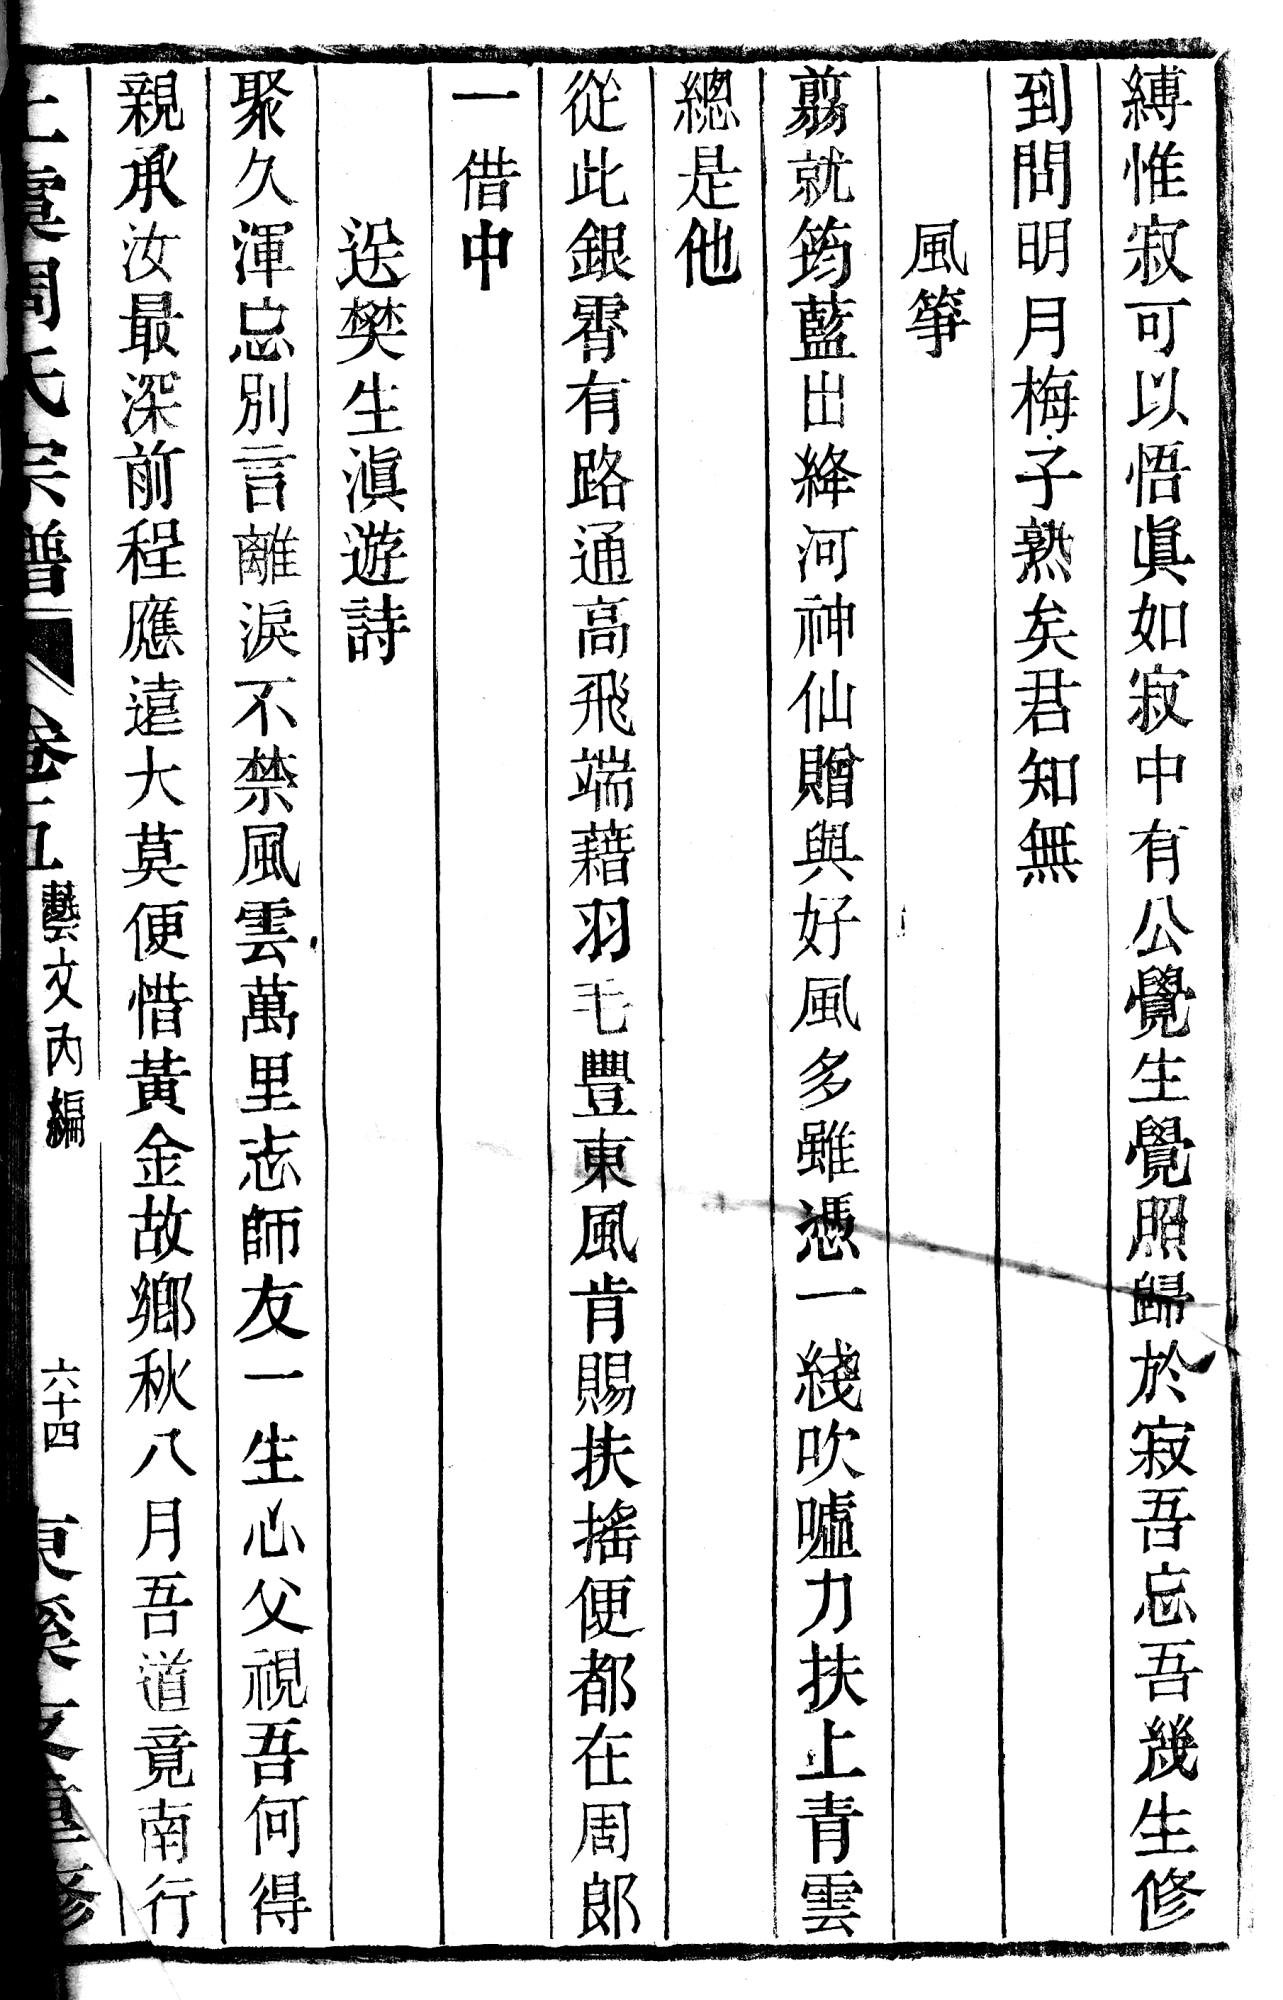 縛惟寂可以悟眞如寂中有公覺生覺照歸於寂吾忘吾幾生修
到問明月梅子熟矣君知無
風箏
剪就筠藍出絳河神仙贈與好風多雖憑一綫吹噓力扶上青雲
總是他
從此銀霄有路通高飛端藉羽毛豐東風肯賜扶搖便都在周郎
一借中
送樊生滇遊詩
聚久渾忘別言離淚不禁風雲萬里志師友一生心父視吾何得
親承汝最深前程應遠大莫便惜黃金故鄉秋八月吾道竟南行
上虞周氏宗譜 卷十五 藝文內編 六十四 東溪支重修